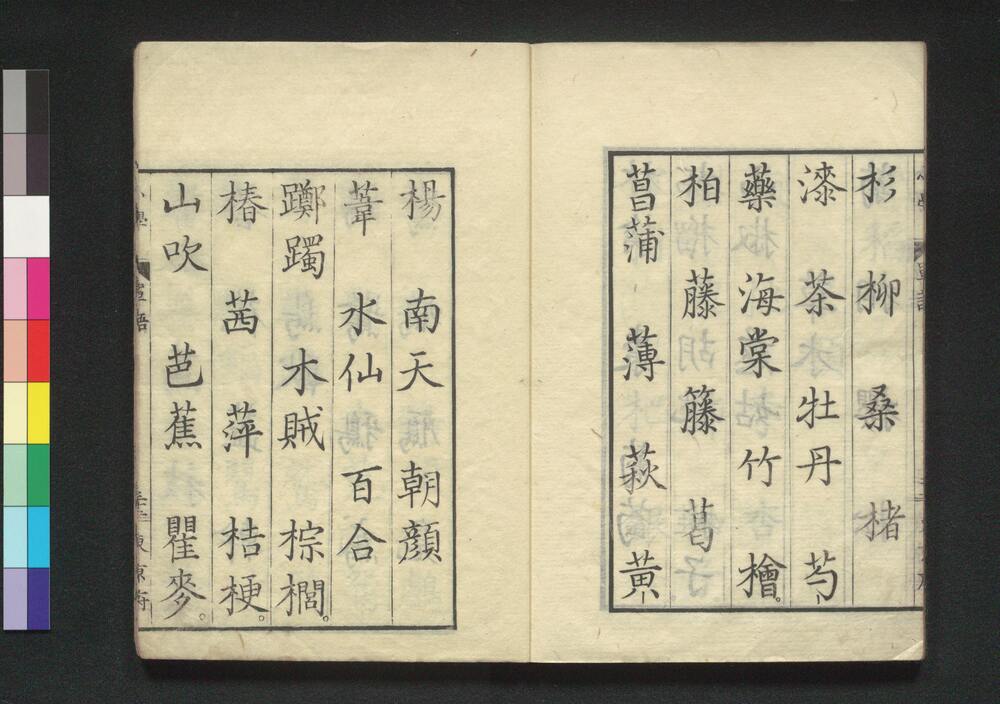 杉 柳 桑 楮
漆 茶 牡丹 芍
藥 海棠 竹 檜。
柏 藤 籐 葛
菖蒲 薄 萩 黄
楊 南天 朝顔
葦 水仙 百合
躑躅 木賊 棕櫚。
椿 茜 萍 桔梗。
山吹 芭蕉 瞿麥。